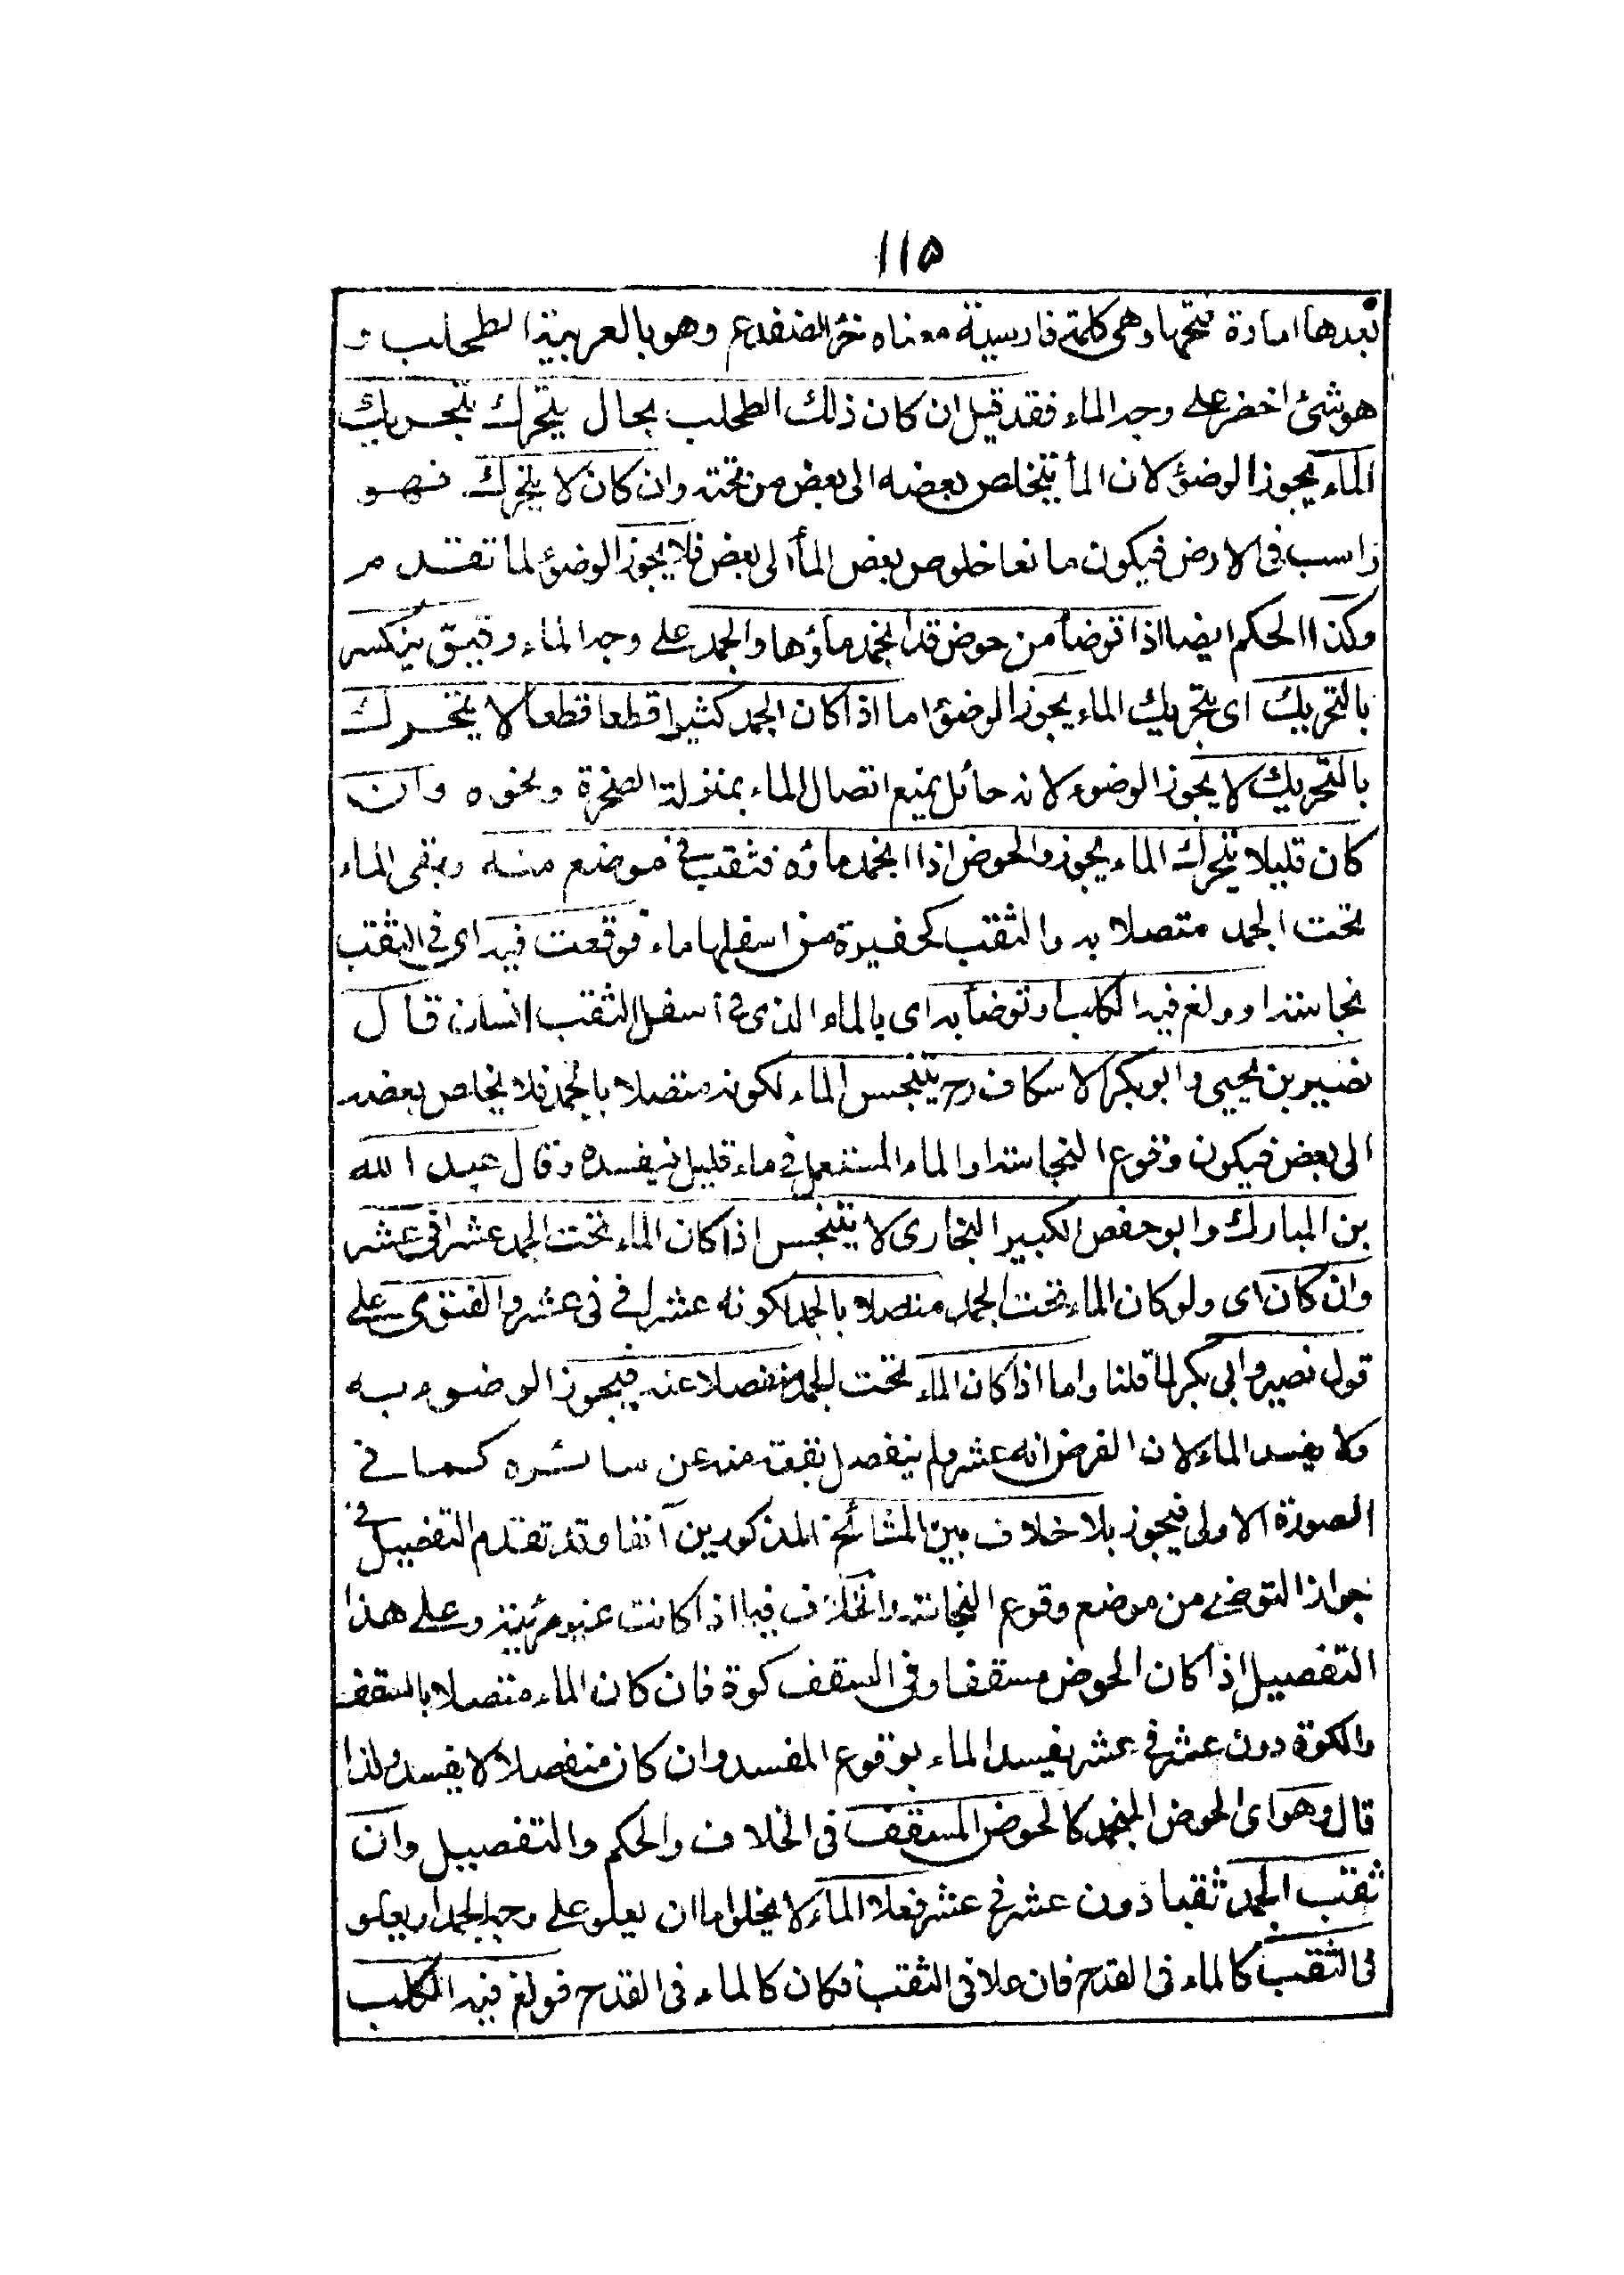 ١١٥
بعدها امارة فتحها وهى كلمة فارسية معناه خرء الضفدع وهو بالعربية الطحلب و
هو شئ اخضر على وجه الماء فقد قيل ان كان ذلك الطحلب بحال يتحرك بتحريك
الماء يجوز الوضؤ لان المأ يتخلص بعضه الى بعض من تحته وان كان لا يتحرك فهو
راسب فى الارض فيكون مانعا خلوص بعض المأ الى بعض فلا يجوز الوضؤ لما تقدم
وكذا الحكم ايضا اذا توضأ من حوض قد انجمد ماؤها والجمد على وجه الماء رقيق ينكسر
بالتحريك اى بتحريك الماء يجوز الوضؤ اما اذا كان الجمد كثيرا قطعا قطعا لا يتحرك
بالتحريك لا يجوز الوضوء لانه حائل يمنع اتصال الماء بمنزلة الصخرة ونحوه وان
كان قليلا يتحرك الماء يجوز والحوض اذا انجمد ماؤه فثقب فى موضع منه وبقى الماء
تحت الجمد متصلا به والثقب كحفيرة من اسفلها ماء فوقعت فيه اى فى الثقب
نجاسة او ولغ فيه الكلب او توضأ به اى بالماء الذى فى اسفل الثقب انسان قال
نصير بن يحيى وابوبكر الاسكاف رح يتنجس الماء لكونه متصلا بالجمد فلا يخلص بعضه
الى بعض فيكون وقوع النجاسة او الماء المستعمل فى ماء قليل فيفسده وقال عبد الله
بن المبارك وابوحفص الكبير البخارى لا يتنجس اذا كان الماء تحت الجمد عشرا فى عشر
وان كان اى ولو كان الماء تحت الجمد متصلا بالجمد لكونه عشرا فى فى عشر والفتوى على
قول نصير وابى بكر لما قلنا واما اذا كان الماء تحت الجمد منفصلا عنه فيجوز الوضوء به
ولا يفسد الماء لان الفرض انه عشر ولم ينفصل بقعة منه عن سائره كما فى
الصورة الاولى فيجوز بلا خلاف بين المشائخ المذكورين آنفا وقد تقدم التفصيل فى
جواز التوضئ من موضع وقوع النجاسة والخلاف فيها اذا كانت غير مرئية وعلى هذا
التفصيل اذا كان الحوض مسقفا وفى السقف كوة فان كان الماء متصلا بالسقف
والكوة دون عشر فى عشر يفسد الماء بوقوع المفسد وان كان منفصلا لا يفسد ولذا
قال وهو اى الحوض المنجمد كالحوض المسقف فى الخلاف والحكم والتفصيل وان
ثقب الجمد ثقبا دون عشر فى عشر فعلا الماء لا يخلو اما ان يعلو على وجه الجمد او يعلو
فى الثقب كالماء فى القدح فان علا فى الثقب فكان كالماء فى القدح فولغ فيه الكلب